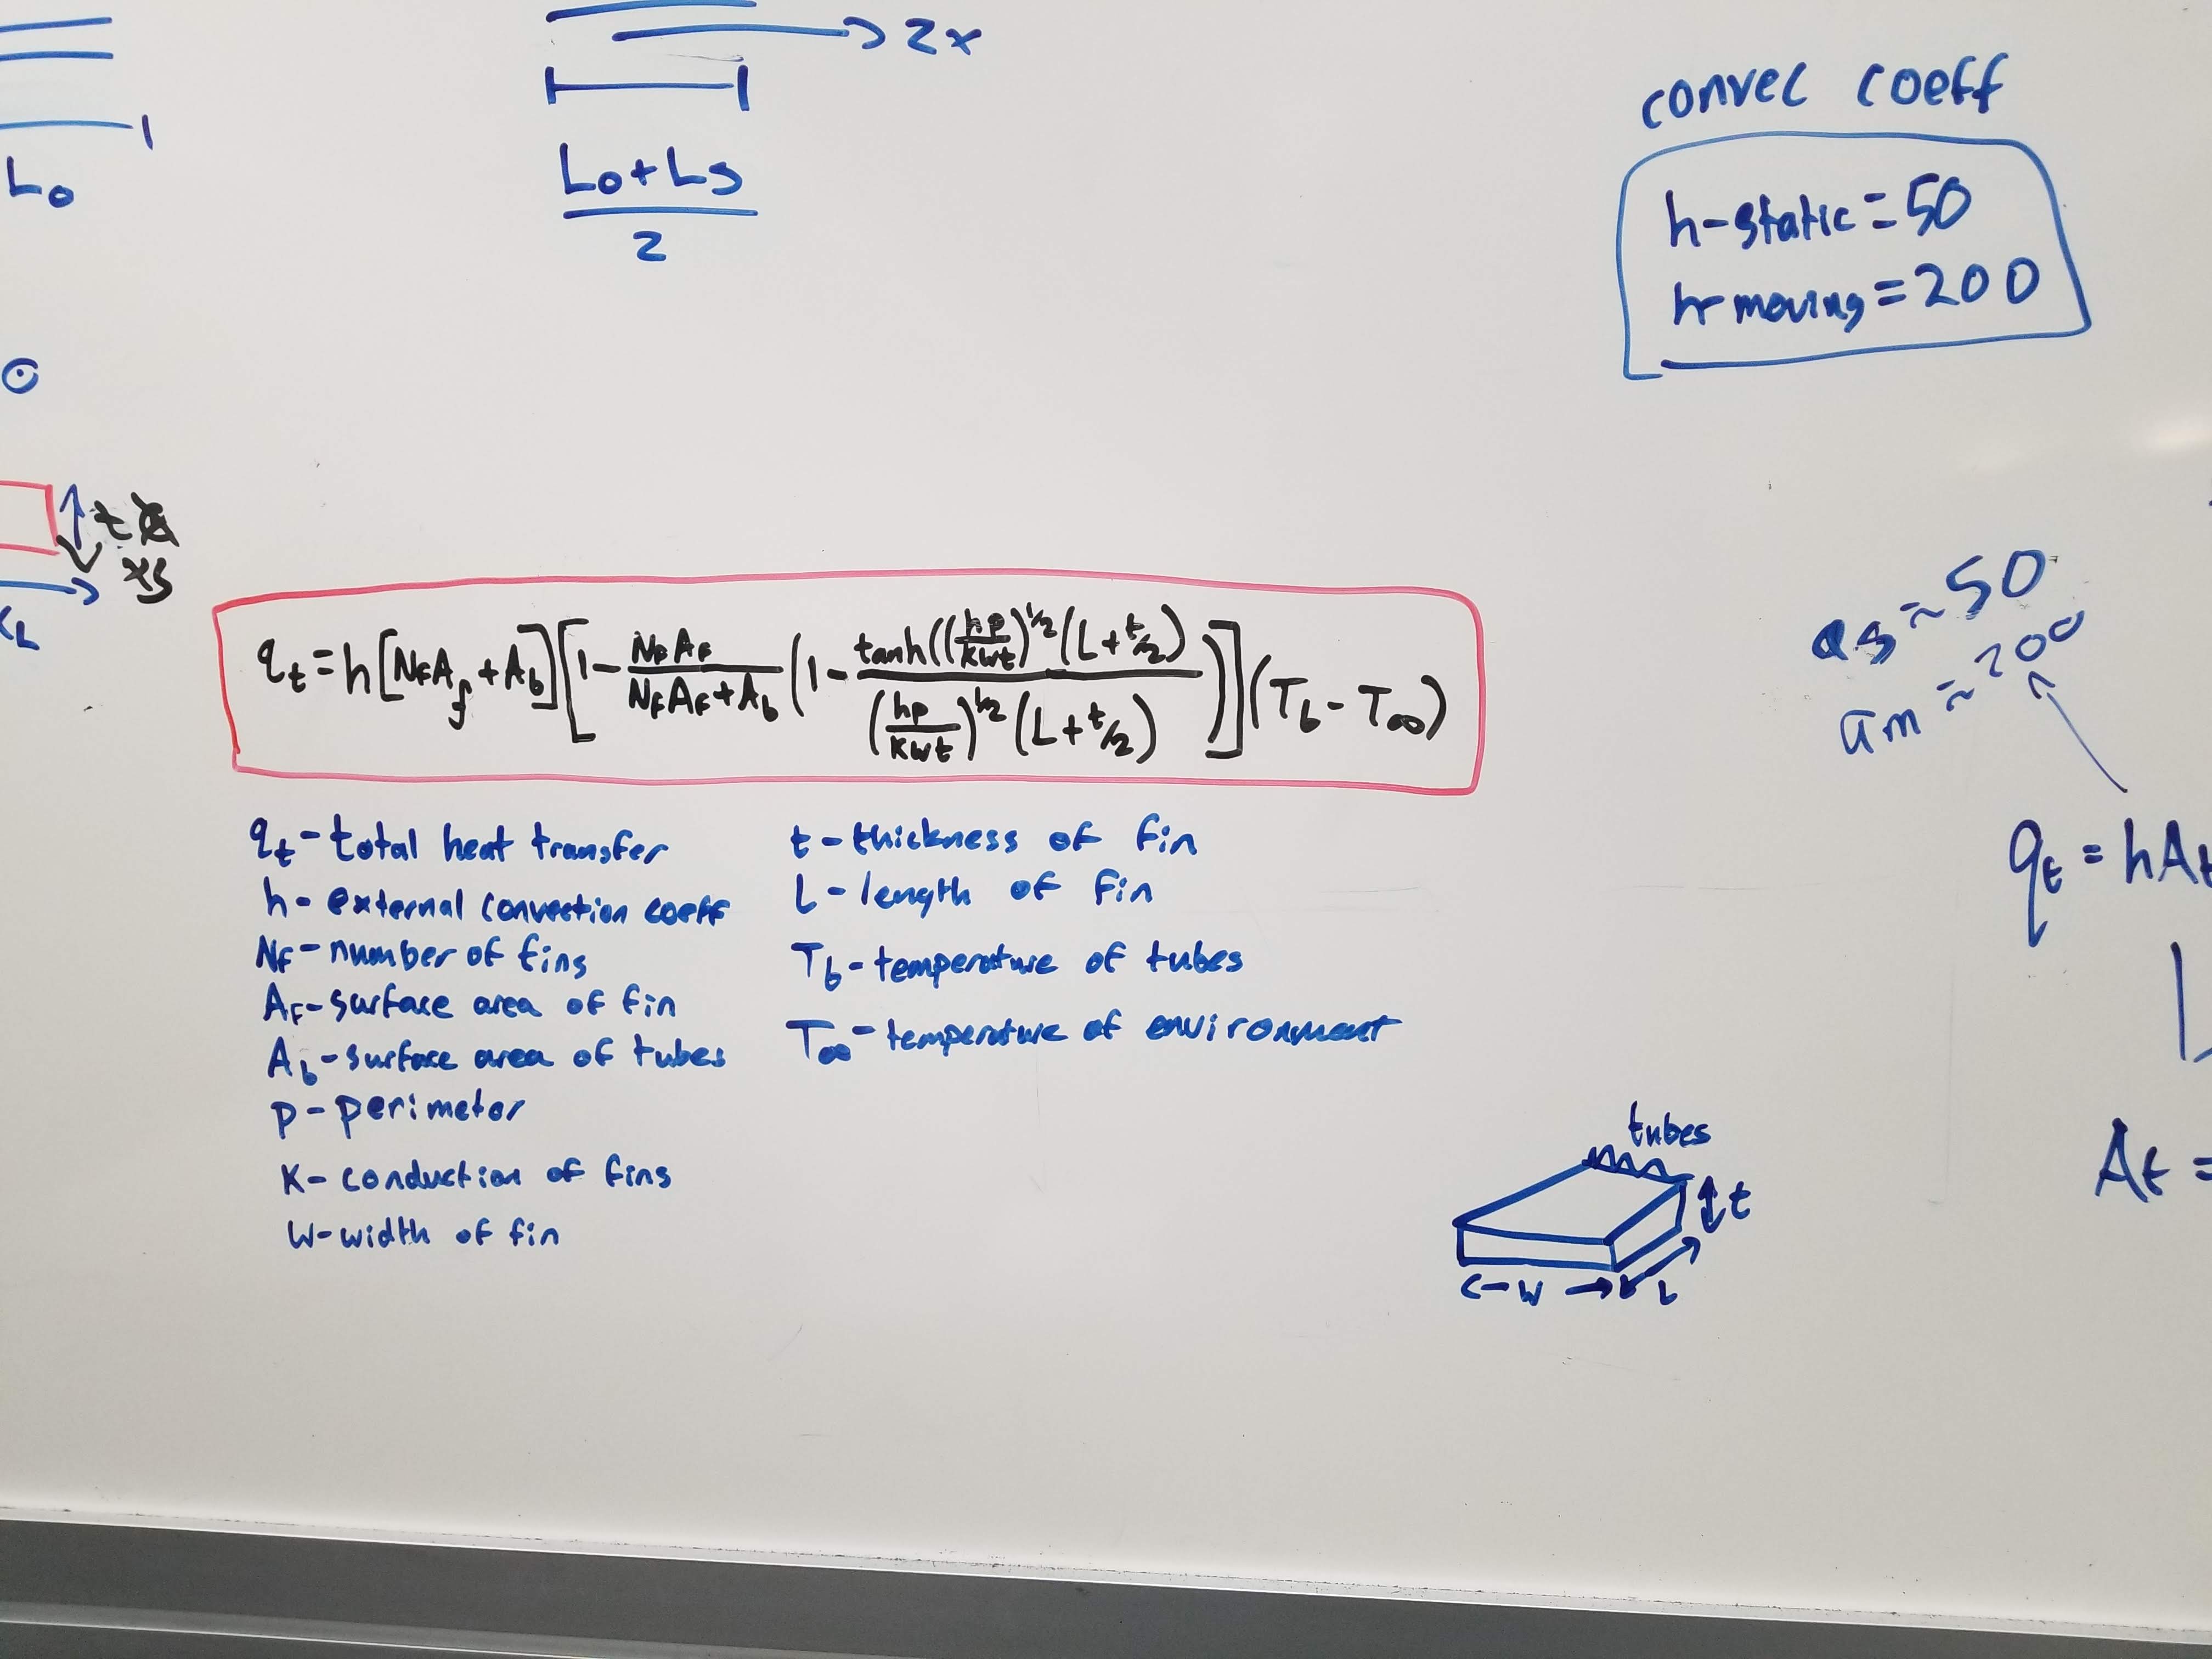 → 2x
L₀ + Ls
2
L₀
convec coeff
h-static = 50
h-moving = 200
t
xs
qₜ = h[N_F A_f + A_b][1 - N_F A_F / (N_F A_F + A_b) (1 - tanh((hp/kwt)^1/2 (L + t/2)) / ((hp/kwt)^1/2 (L + t/2)))](T_b - T∞)
as ~ 50
am ~ 200
qₜ - total heat transfer
h - external convection coeff
N_F - number of fins
A_F - surface area of fin
A_b - surface area of tubes
p - perimetor
K - conduction of fins
W - width of fin
t - thickness of fin
L - length of fin
T_b - temperature of tubes
T∞ - temperature of environment
qₜ = hAₜ
Aₜ =
tubes
t
W
L